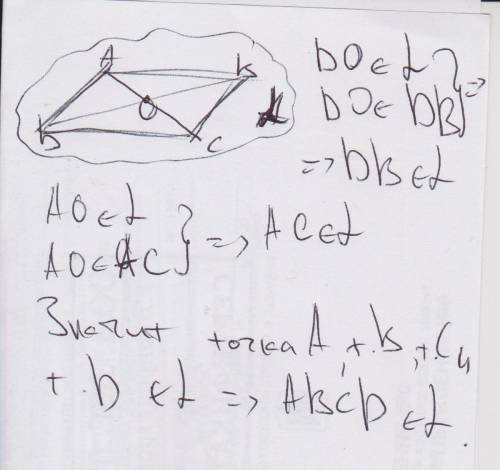 A B
O
D C α
DO ∈ α
DO ∈ DB } =>
=> DB ∈ α
AO ∈ α
AO ∈ AC } => AC ∈ α
Значит точка A, т.B, т.C и
т.D ∈ α => ABCD ∈ α.